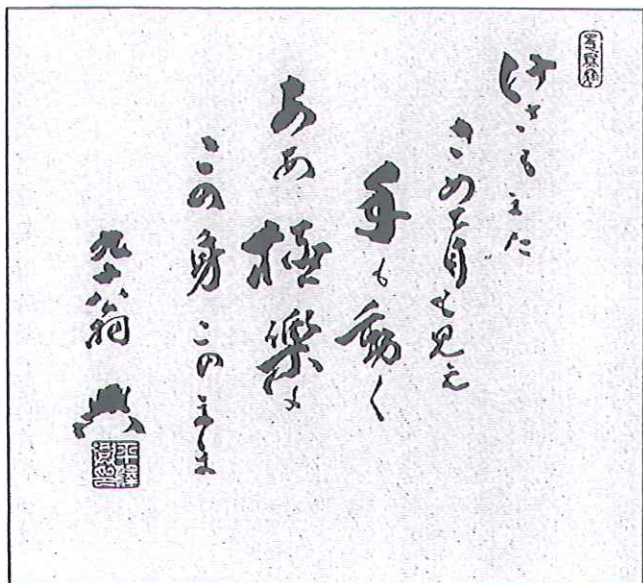 けさもまた
さめて目も見え
手も動く
ああ極楽よ
この身このまま
九十八翁